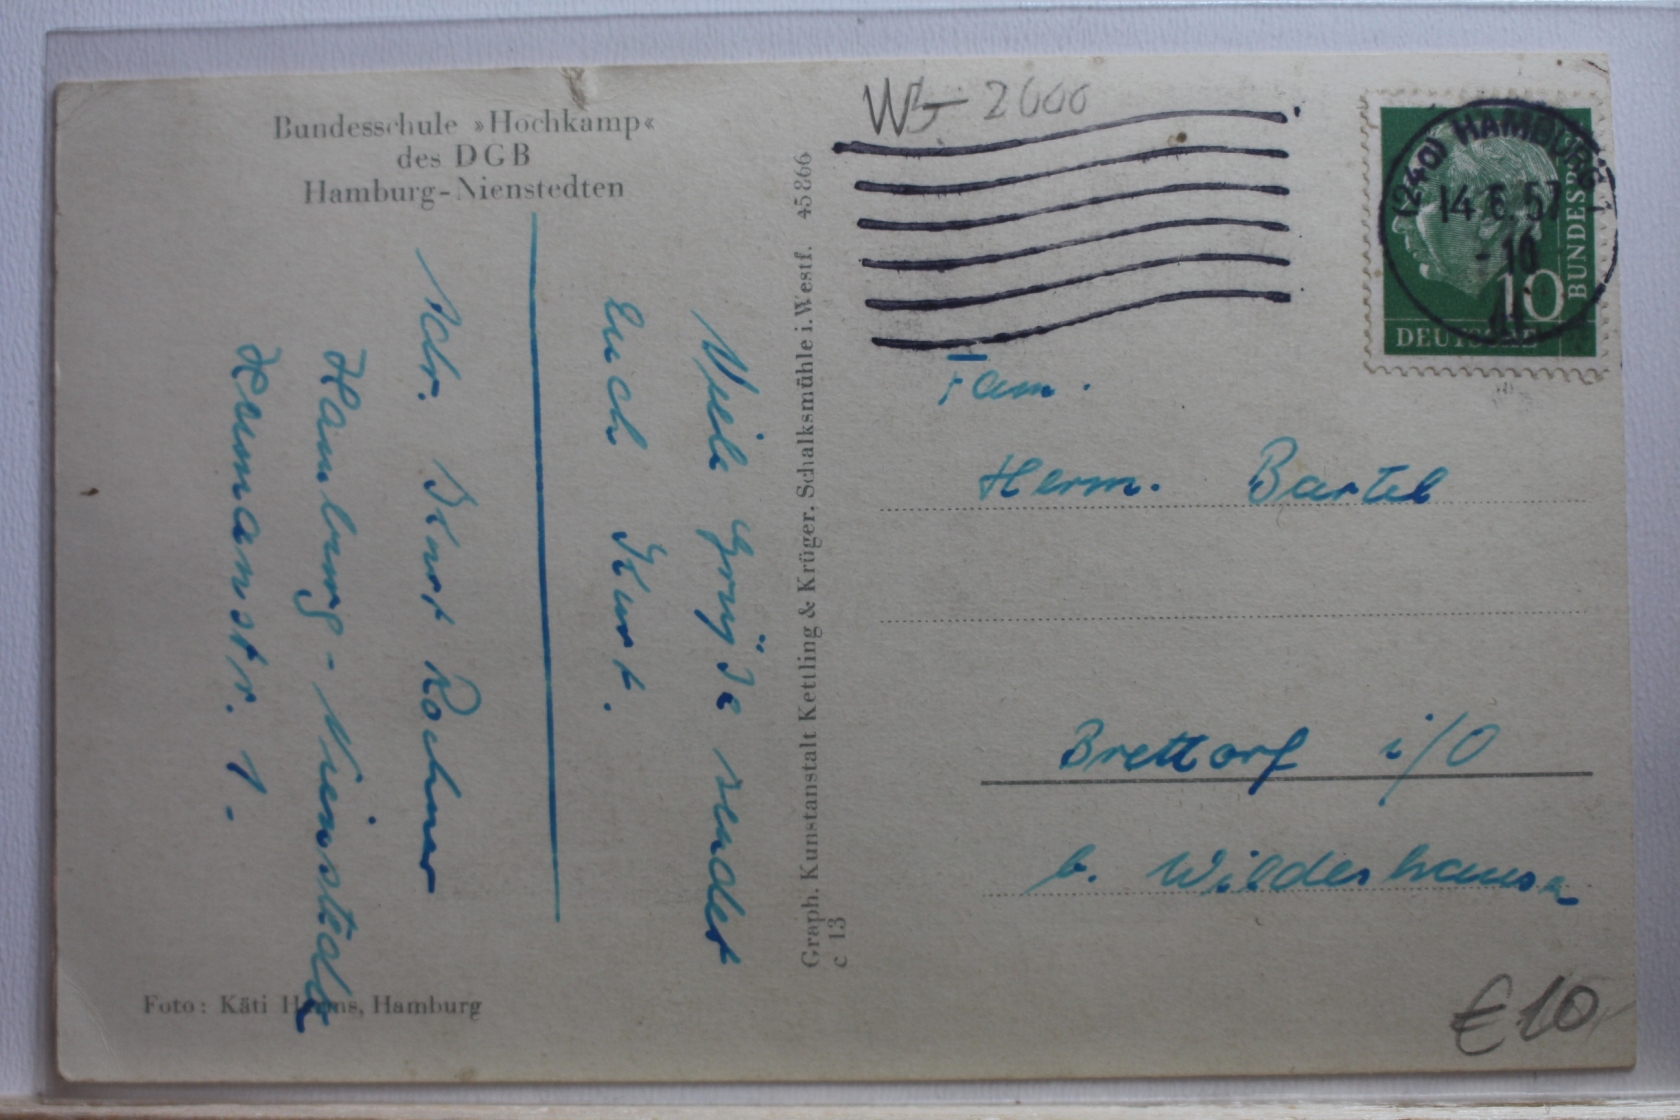 Bundesschule »Hochkamp«
des DGB
Hamburg-Nienstedten
Viele Grüße sendet
Euch Kurt.
Adr. Kurt
Hamburg-Nienstedten
Hermannstr. 1.
Foto: Käti Harms, Hamburg
Graph. Kunstanstalt Kettling & Krüger. Schalksmühle i.Westf. 45866
c 13
2000
(24a) HAMBURG
14.6.57-
- 10
DEUTSCHE
BUNDESPOST
10
Fam.
Herm. Bartel
Brettorf i/O
b. Wildeshausen
€ 10